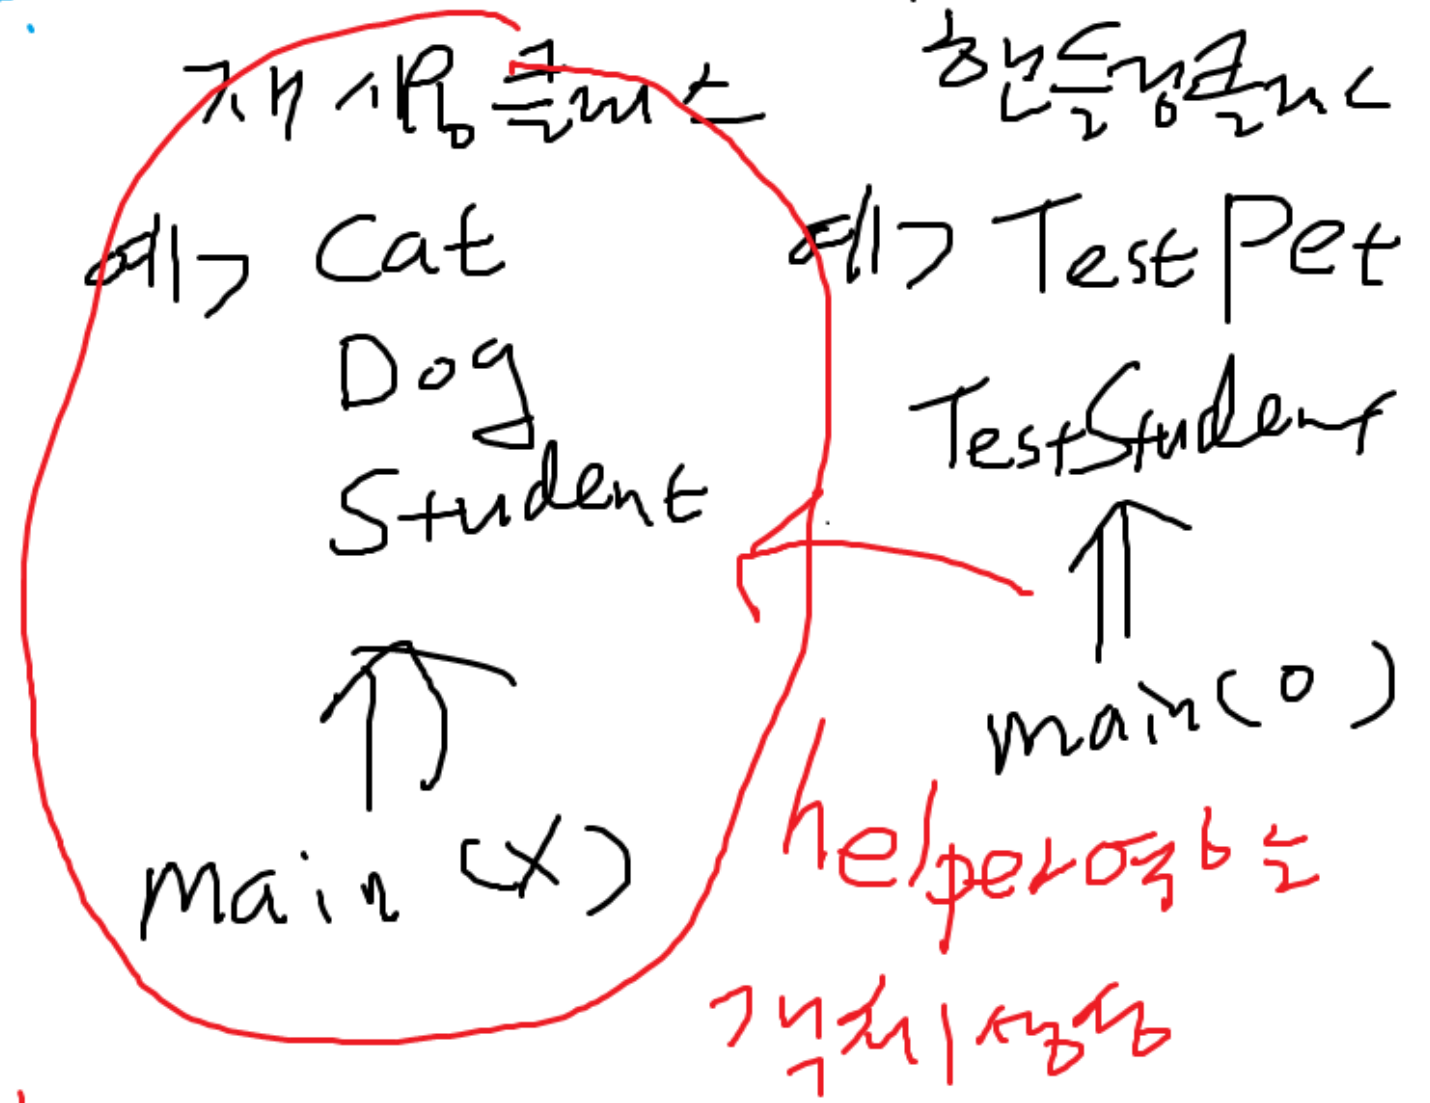 예> Cat
Dog
Student
main (X)
핸들링클래스
예> TestPet
TestStudent
main(O)
helper
객체생성